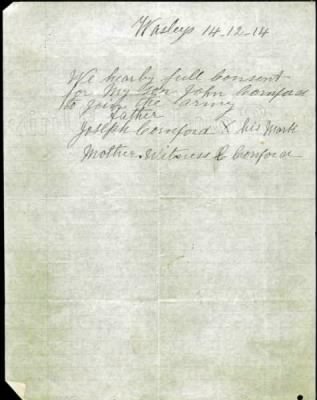 Wasleys 14-12-14
We hearby full Consent
for My son John Cornford
to join the army
father
Joseph Cornford X his Mark
Mother. Witness E Cornford